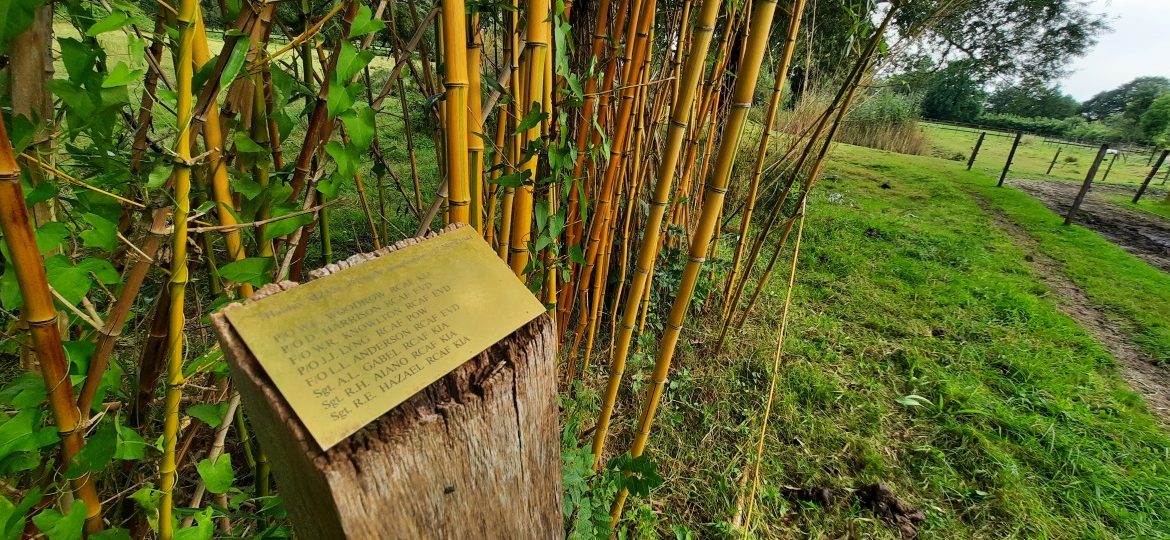 P/O W.F. WOODROW RCAF KIA
P/O D. HARRISON RCAF EVD
F/O W.R. KNOWLTON RCAF EVD
P/O J.I. LANG RCAF POW
F/O L.L. ANDERSON RCAF EVD
Sgt. A.L. GABEL RCAF KIA
Sgt. R.H. AIANO RCAF KIA
Sgt. R.E. HAZAEL RCAF KIA